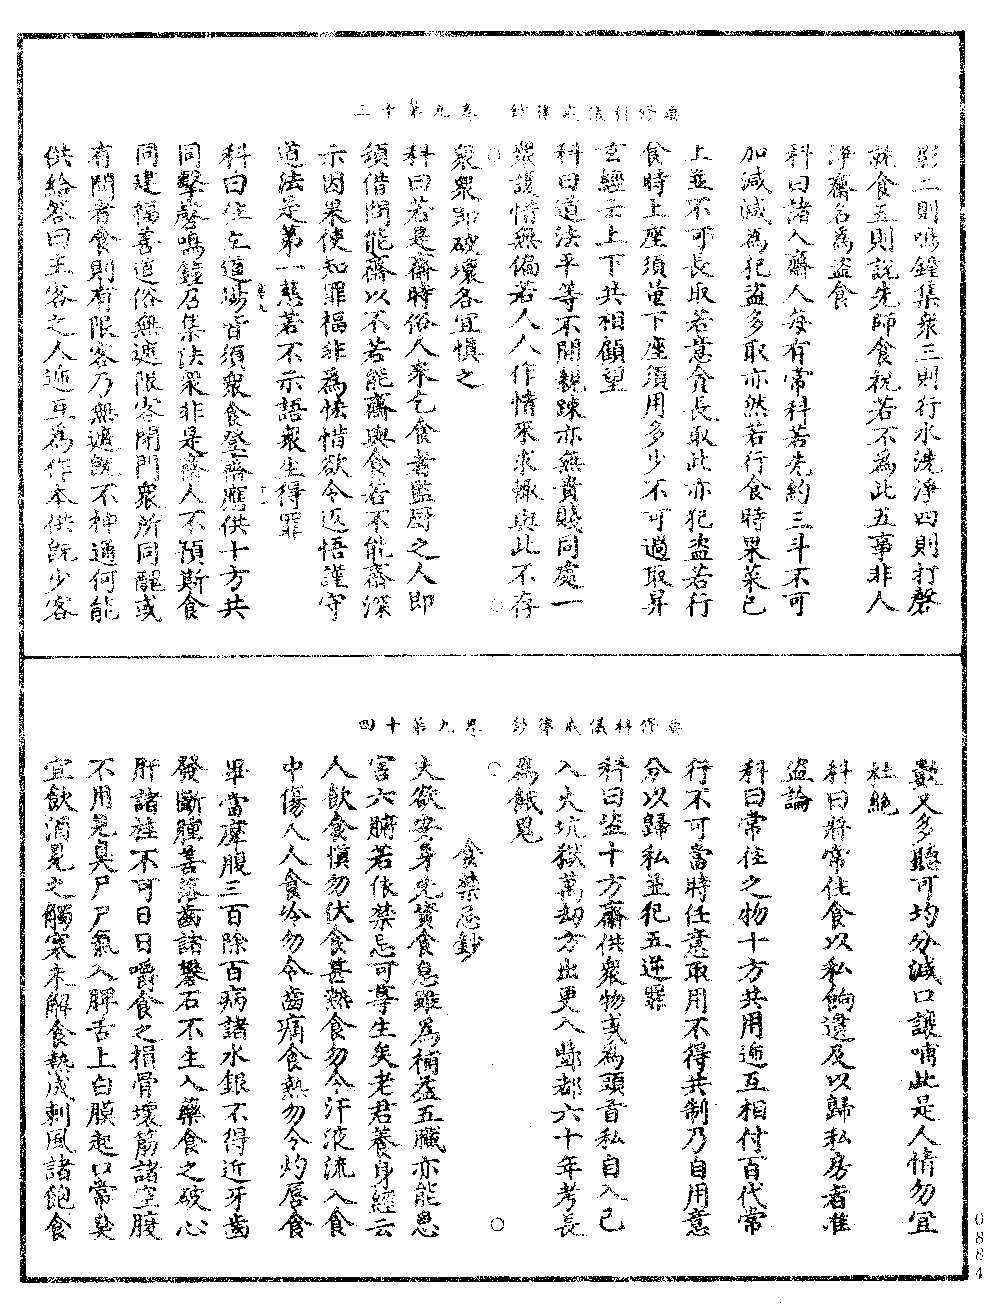 要修科儀戒律鈔　卷九第十三
影二則鳴鐘集衆三則行水洗淨四則打磬
就食五則說先師食祝若不為此五事非人
淨齋名為盜食
科曰諸入齋人每有常科若先約三斗不可
加減減為犯盜多取亦然若行食時果菜已
上並不可長取若意貪長取此亦犯盜若行
食時上座須量下座須用多少不可過取昇
玄經云上下共相顧望
科曰道法平等不閒親踈亦無貴賤同處一
衆護情無偏若人人作情來求輙與此不存
衆衆即破壞各宜慎之
科曰若是齋時俗人來乞食者監厨之人即
須借問能齋以不若能齋與食若不能齋深
示因果使知罪福非為恡惜欲令返悟謹守
道法是第一慈若不示語衆生得罪
科曰住立道場皆須衆食登齋應供十方共
同擊磬鳴鐘乃集法衆非是齋人不預斯食
同建福善道俗無遮限客閉門衆所同醜或
有閉者食則有限客乃無遮旣不神通何能
供給答曰主客之人遞互為作本供旣少客
要修科儀戒律鈔　卷九第十四
數又多聽可均分減口讓哺此是人情勿宜
杜絶
科曰將常住食以私餉遺及以歸私房者准
盜論
科曰常住之物十方共用遞互相付百代常
行不可當時任意取用不得共制乃自用意
分以歸私並犯五逆罪
科曰盜十方齋供衆物或為頭首私自入己
入火坑獄萬劫方出更入酆都六十年考長
為餓鬼
食禁忌鈔
夫欲安身先資食息雖為補益五臟亦能患
害六腑若依禁忌可尊生矣老君養身經云
人飲食愼勿伏食甚熱食勿令汗液流入食
中傷人人食冷勿令齒痛食熱勿令灼脣食
畢當摩腹三百除百病諸水銀不得近牙齒
發斷腫善落齒諸礬石不主入藥食之破心
肝諸桂不可日日嚼食之損骨壞筋諸空腹
不用見臭尸尸氣入脾舌上白膜起口常臭
宜飲酒見之觸寒來解食熱成刺風諸飽食
0884